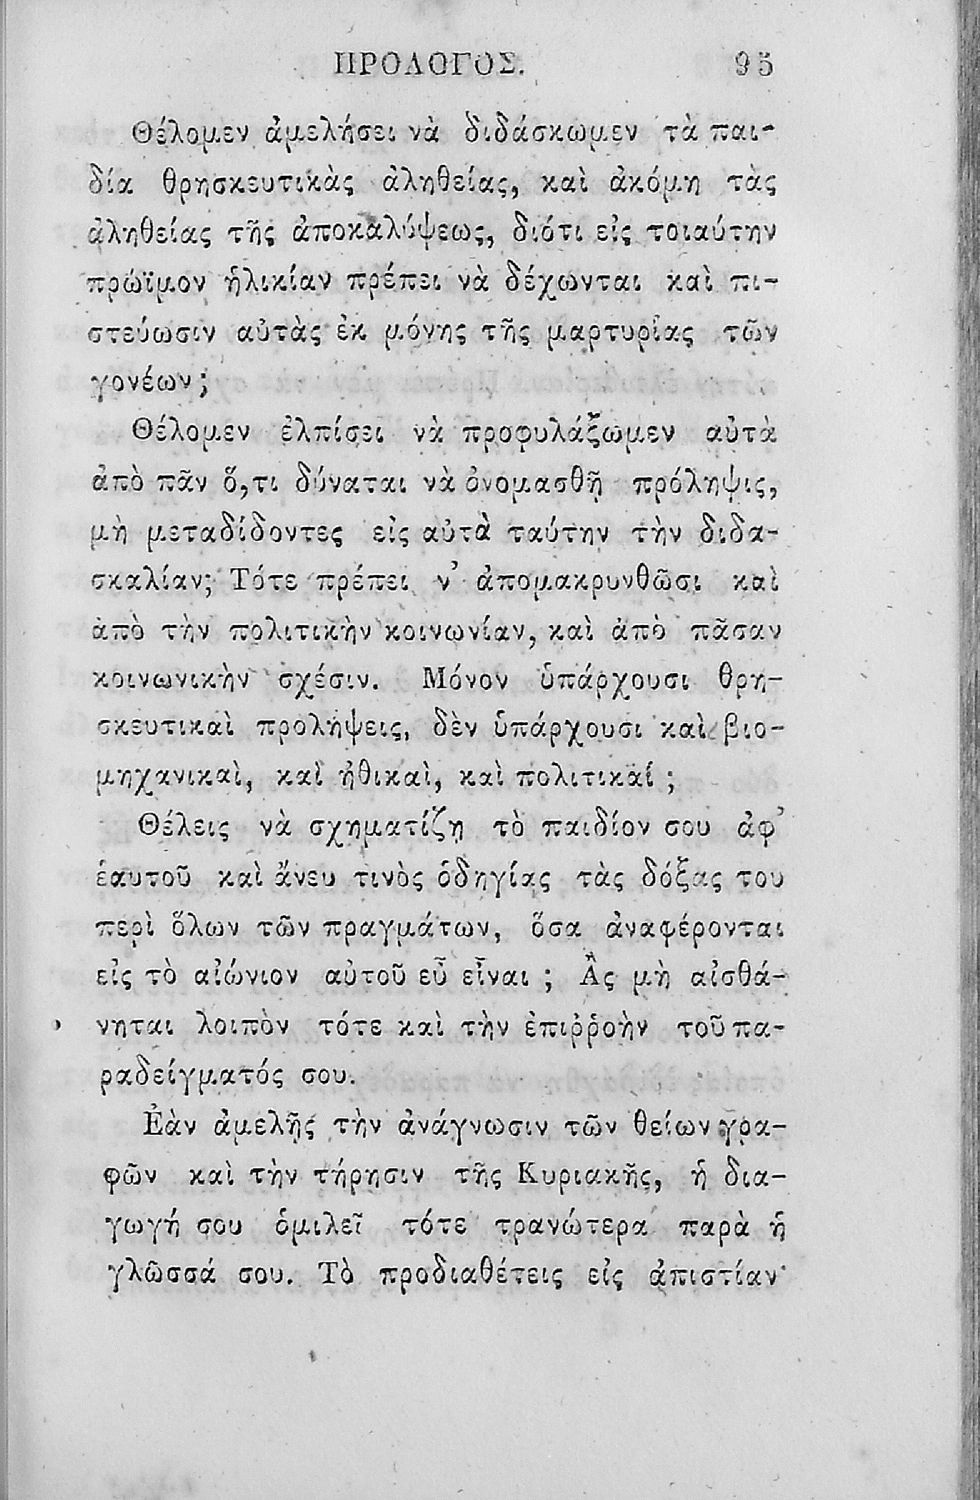 ΠΡΟΛΟΓΟΣ. 95
Θέλομεν ἀμελήσει νὰ διδάσκωμεν τὰ παι-
δία θρησκευτικὰς ἀληθείας, καὶ ἀκόμη τὰς
ἀληθείας τῆς ἀποκαλύψεως, διότι εἰς τοιαύτην
πρώϊμον ἡλικίαν πρέπει νὰ δέχωνται καὶ πι-
στεύωσιν αὐτὰς ἐκ μόνης τῆς μαρτυρίας τῶν
γονέων;
Θέλομεν ἐλπίσει νὰ προφυλάξωμεν αὐτὰ
ἀπὸ πᾶν ὅ,τι δύναται νὰ ὀνομασθῇ πρόληψις,
μὴ μεταδίδοντες εἰς αὐτὰ ταύτην τὴν διδα-
σκαλίαν; Τότε πρέπει ν’ ἀπομακρυνθῶσι καὶ
ἀπὸ τὴν πολιτικὴν κοινωνίαν, καὶ ἀπὸ πᾶσαν
κοινωνικὴν σχέσιν. Μόνον ὑπάρχουσι θρη-
σκευτικαὶ προλήψεις, δὲν ὑπάρχουσι καὶ βιο-
μηχανικαὶ, καὶ ἠθικαὶ, καὶ πολιτικαί ;
Θέλεις νὰ σχηματίζῃ τὸ παιδίον σου ἀφ’
ἑαυτοῦ καὶ ἄνευ τινὸς ὁδηγίας τὰς δόξας του
περὶ ὅλων τῶν πραγμάτων, ὅσα ἀναφέρονται
εἰς τὸ αἰώνιον αὐτοῦ εὖ εἶναι ; Ἂς μὴ αἰσθά-
νηται λοιπὸν τότε καὶ τὴν ἐπιῤῥοὴν τοῦ πα-
ραδείγματός σου.
Ἐὰν ἀμελῇς τὴν ἀνάγνωσιν τῶν θείων γρα-
φῶν καὶ τὴν τήρησιν τῆς Κυριακῆς, ἡ δια-
γωγή σου ὁμιλεῖ τότε τρανώτερα παρὰ ἡ
γλῶσσά σου. Τὸ προδιαθέτεις εἰς ἀπιστίαν